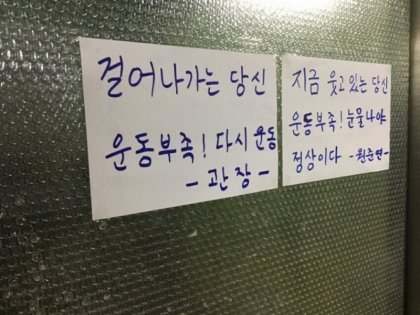 걸어나가는 당신
운동부족! 다시 운동
- 관장 -
지금 웃고 있는 당신
운동부족! 눈물나야
정상이다 -원준연-